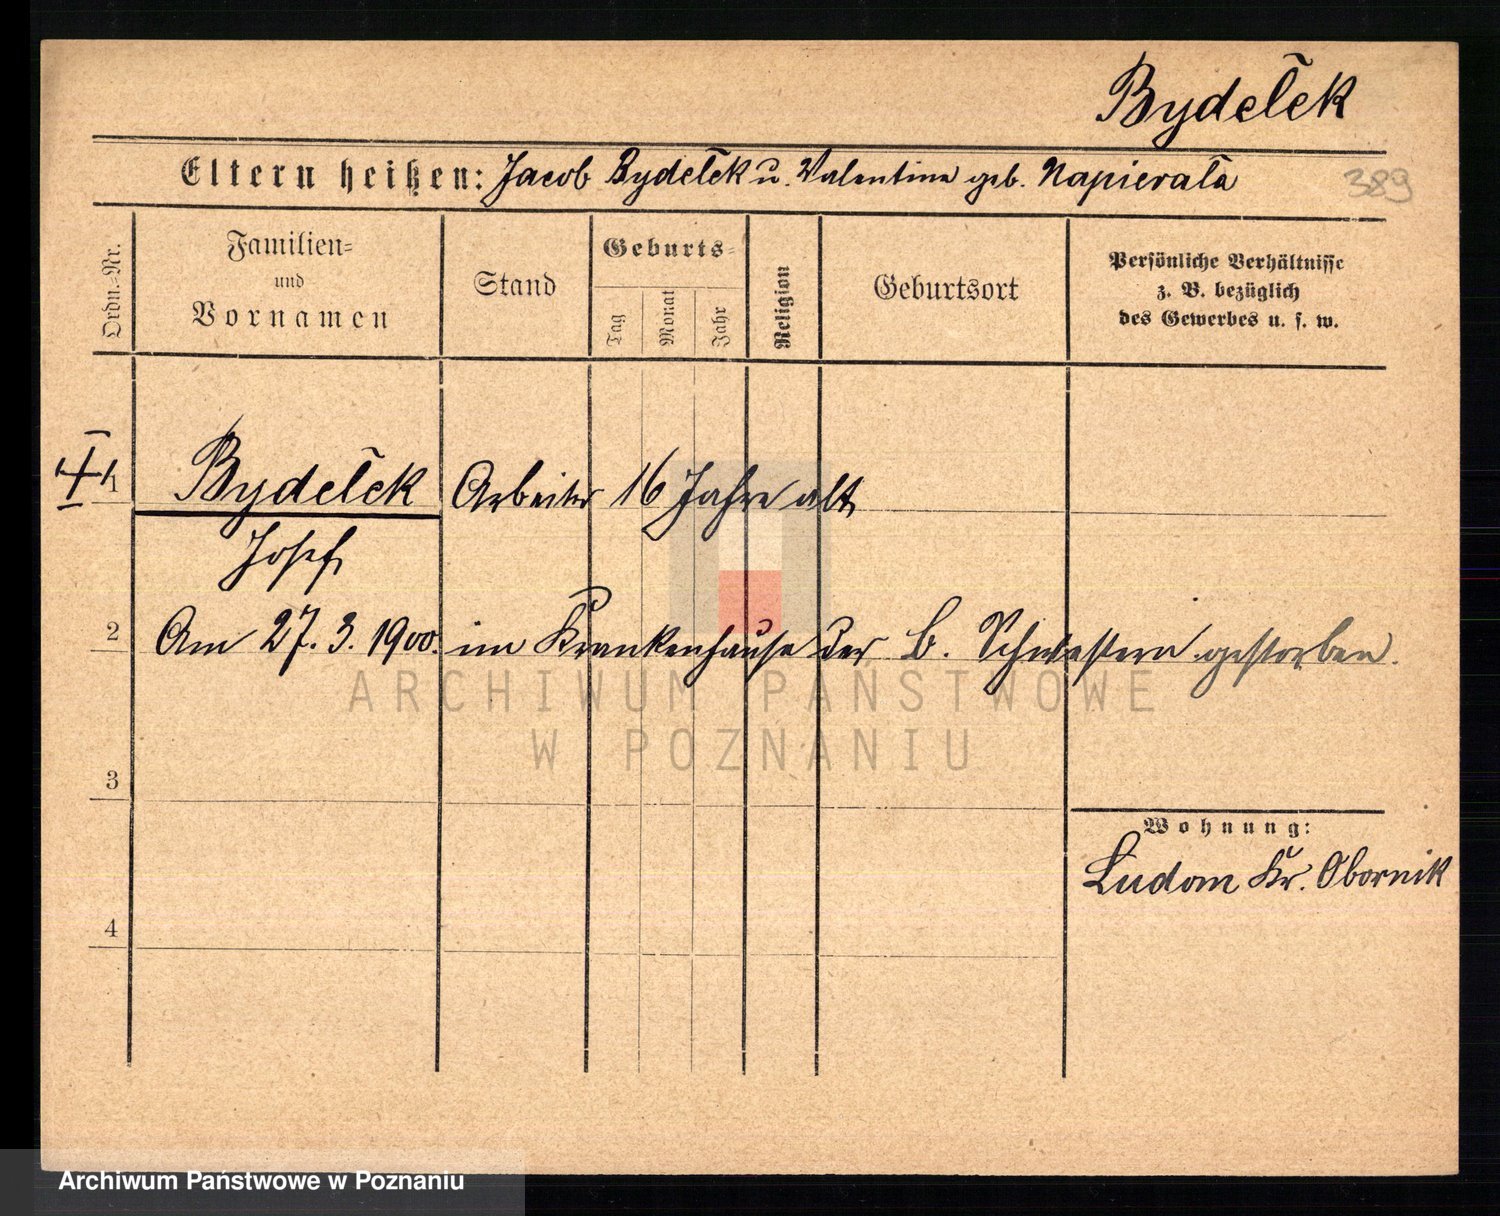 Bydełek
Eltern heißen: Jacob Bydełek u. Valentine geb. Napierała
389
Ordn.-Nr.
Familien-
und
Vornamen
Stand
Geburts-
Tag
Monat
Jahr
Religion
Geburtsort
Persönliche Verhältnisse
z. B. bezüglich
des Gewerbes u. s. w.
1 Bydełek Arbeiter 16 Jahre alt,
Josef,
2 Am 27. 3. 1900. im Krankenhause der b. Schwestern gestorben.
ARCHIWUM PAŃSTWOWE
W POZNANIU
3
Wohnung:
Ludom Kr. Obornik
4
Archiwum Państwowe w Poznaniu